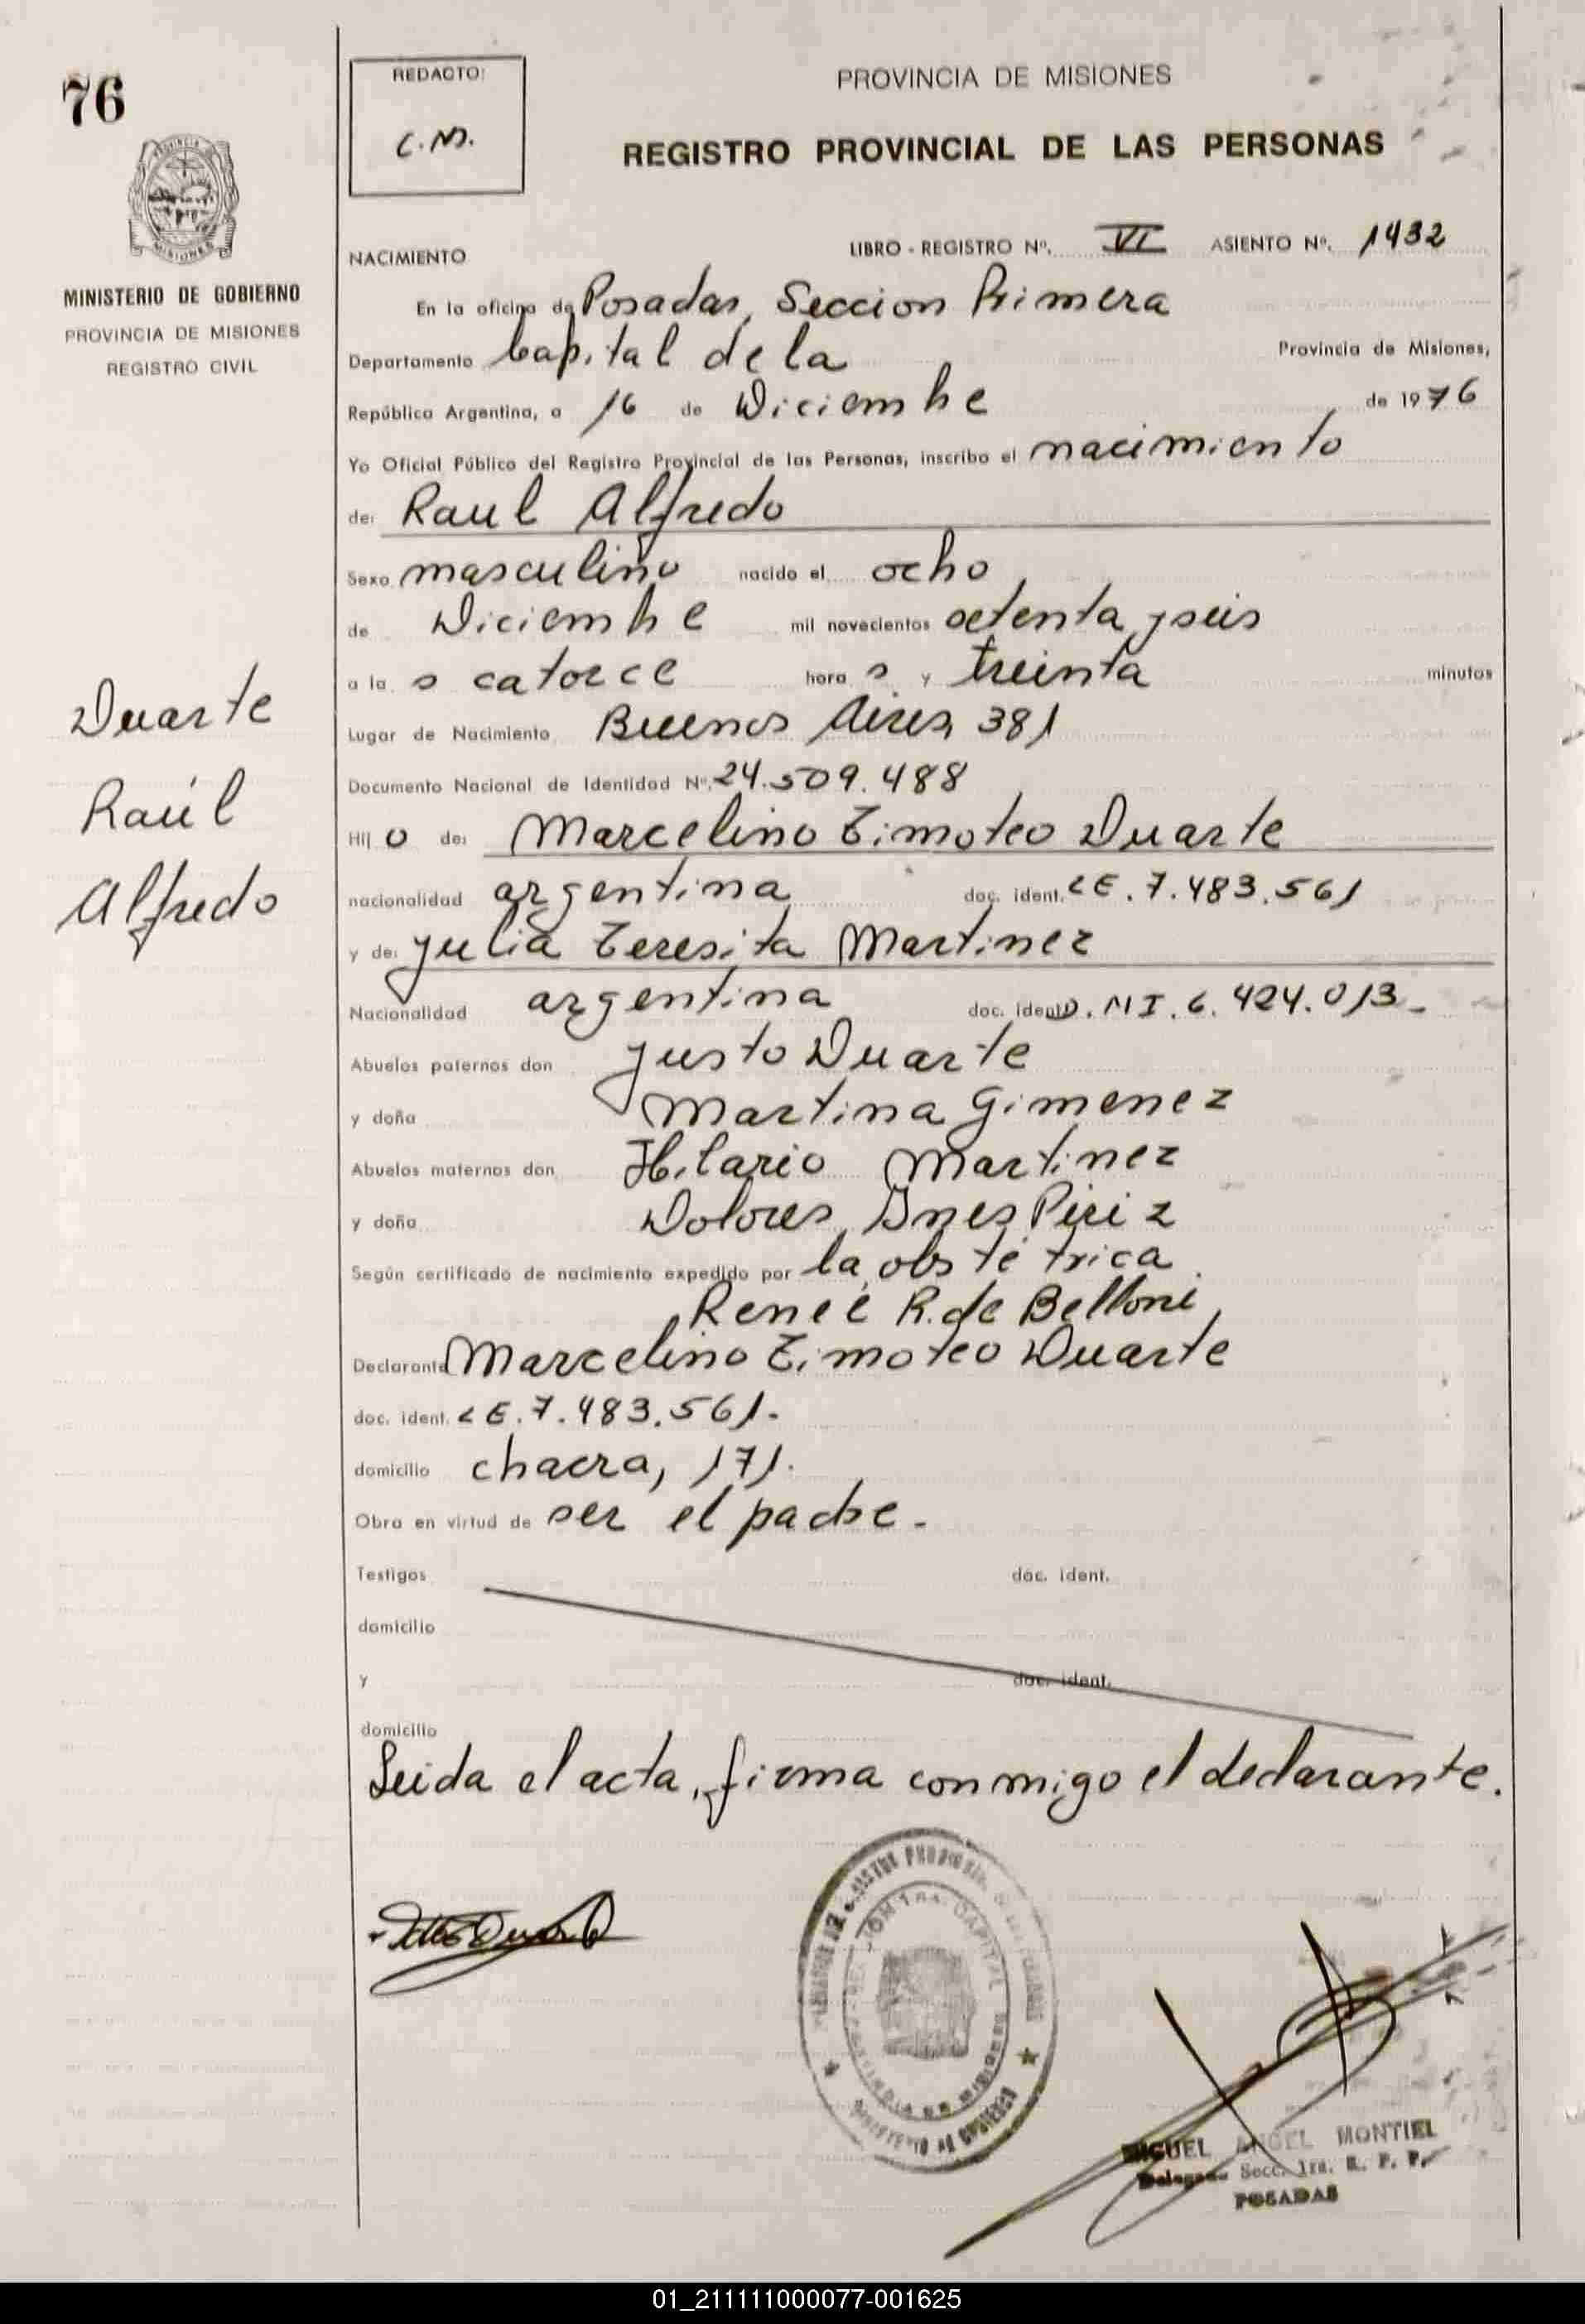 76
MINISTERIO DE GOBIERNO
PROVINCIA DE MISIONES
REGISTRO CIVIL
Duarte
Raúl
Alfredo
REDACTO:
C.M.
PROVINCIA DE MISIONES
REGISTRO PROVINCIAL DE LAS PERSONAS
NACIMIENTO LIBRO - REGISTRO Nº. VI ASIENTO Nº. 1432
En la oficina de Posadas, Seccion Primera
Departamento Capital de la Provincia de Misiones,
República Argentina, a 16 de Diciembre de 1976
Yo Oficial Público del Registro Provincial de las Personas, inscribo el nacimiento
de: Raul Alfredo
Sexo masculino nacido el ocho
de Diciembre mil novecientos setenta y seis
a la s catorce hora s y treinta minutos
Lugar de Nacimiento Buenos Aires, 381
Documento Nacional de Identidad Nº. 24.509.488
Hij o de: Marcelino Timoteo Duarte
nacionalidad argentina doc. ident. LE. 7.483.561
y de: Julia Teresita Martinez
Nacionalidad argentina doc. ident. D. M I. 6. 424.013-
Abuelos paternos don Justo Duarte
y doña Martina Gimenez
Abuelos maternos don Hilario Martinez
y doña Dolores Ines Piriz
Según certificado de nacimiento expedido por la obstétrica
Reneé R. de Belloni,
Declarante Marcelino Timoteo Duarte
doc. ident. LE. 7.483.561.
domicilio chacra, 171.
Obra en virtud de ser el padre.
Testigos doc. ident.
domicilio
y doc. ident.
domicilio
Leida el acta, firma conmigo el declarante.
MIGUEL ANGEL MONTIEL
Secc. 1ra. R. P. P.
POSADAS
01_211111000077-001625